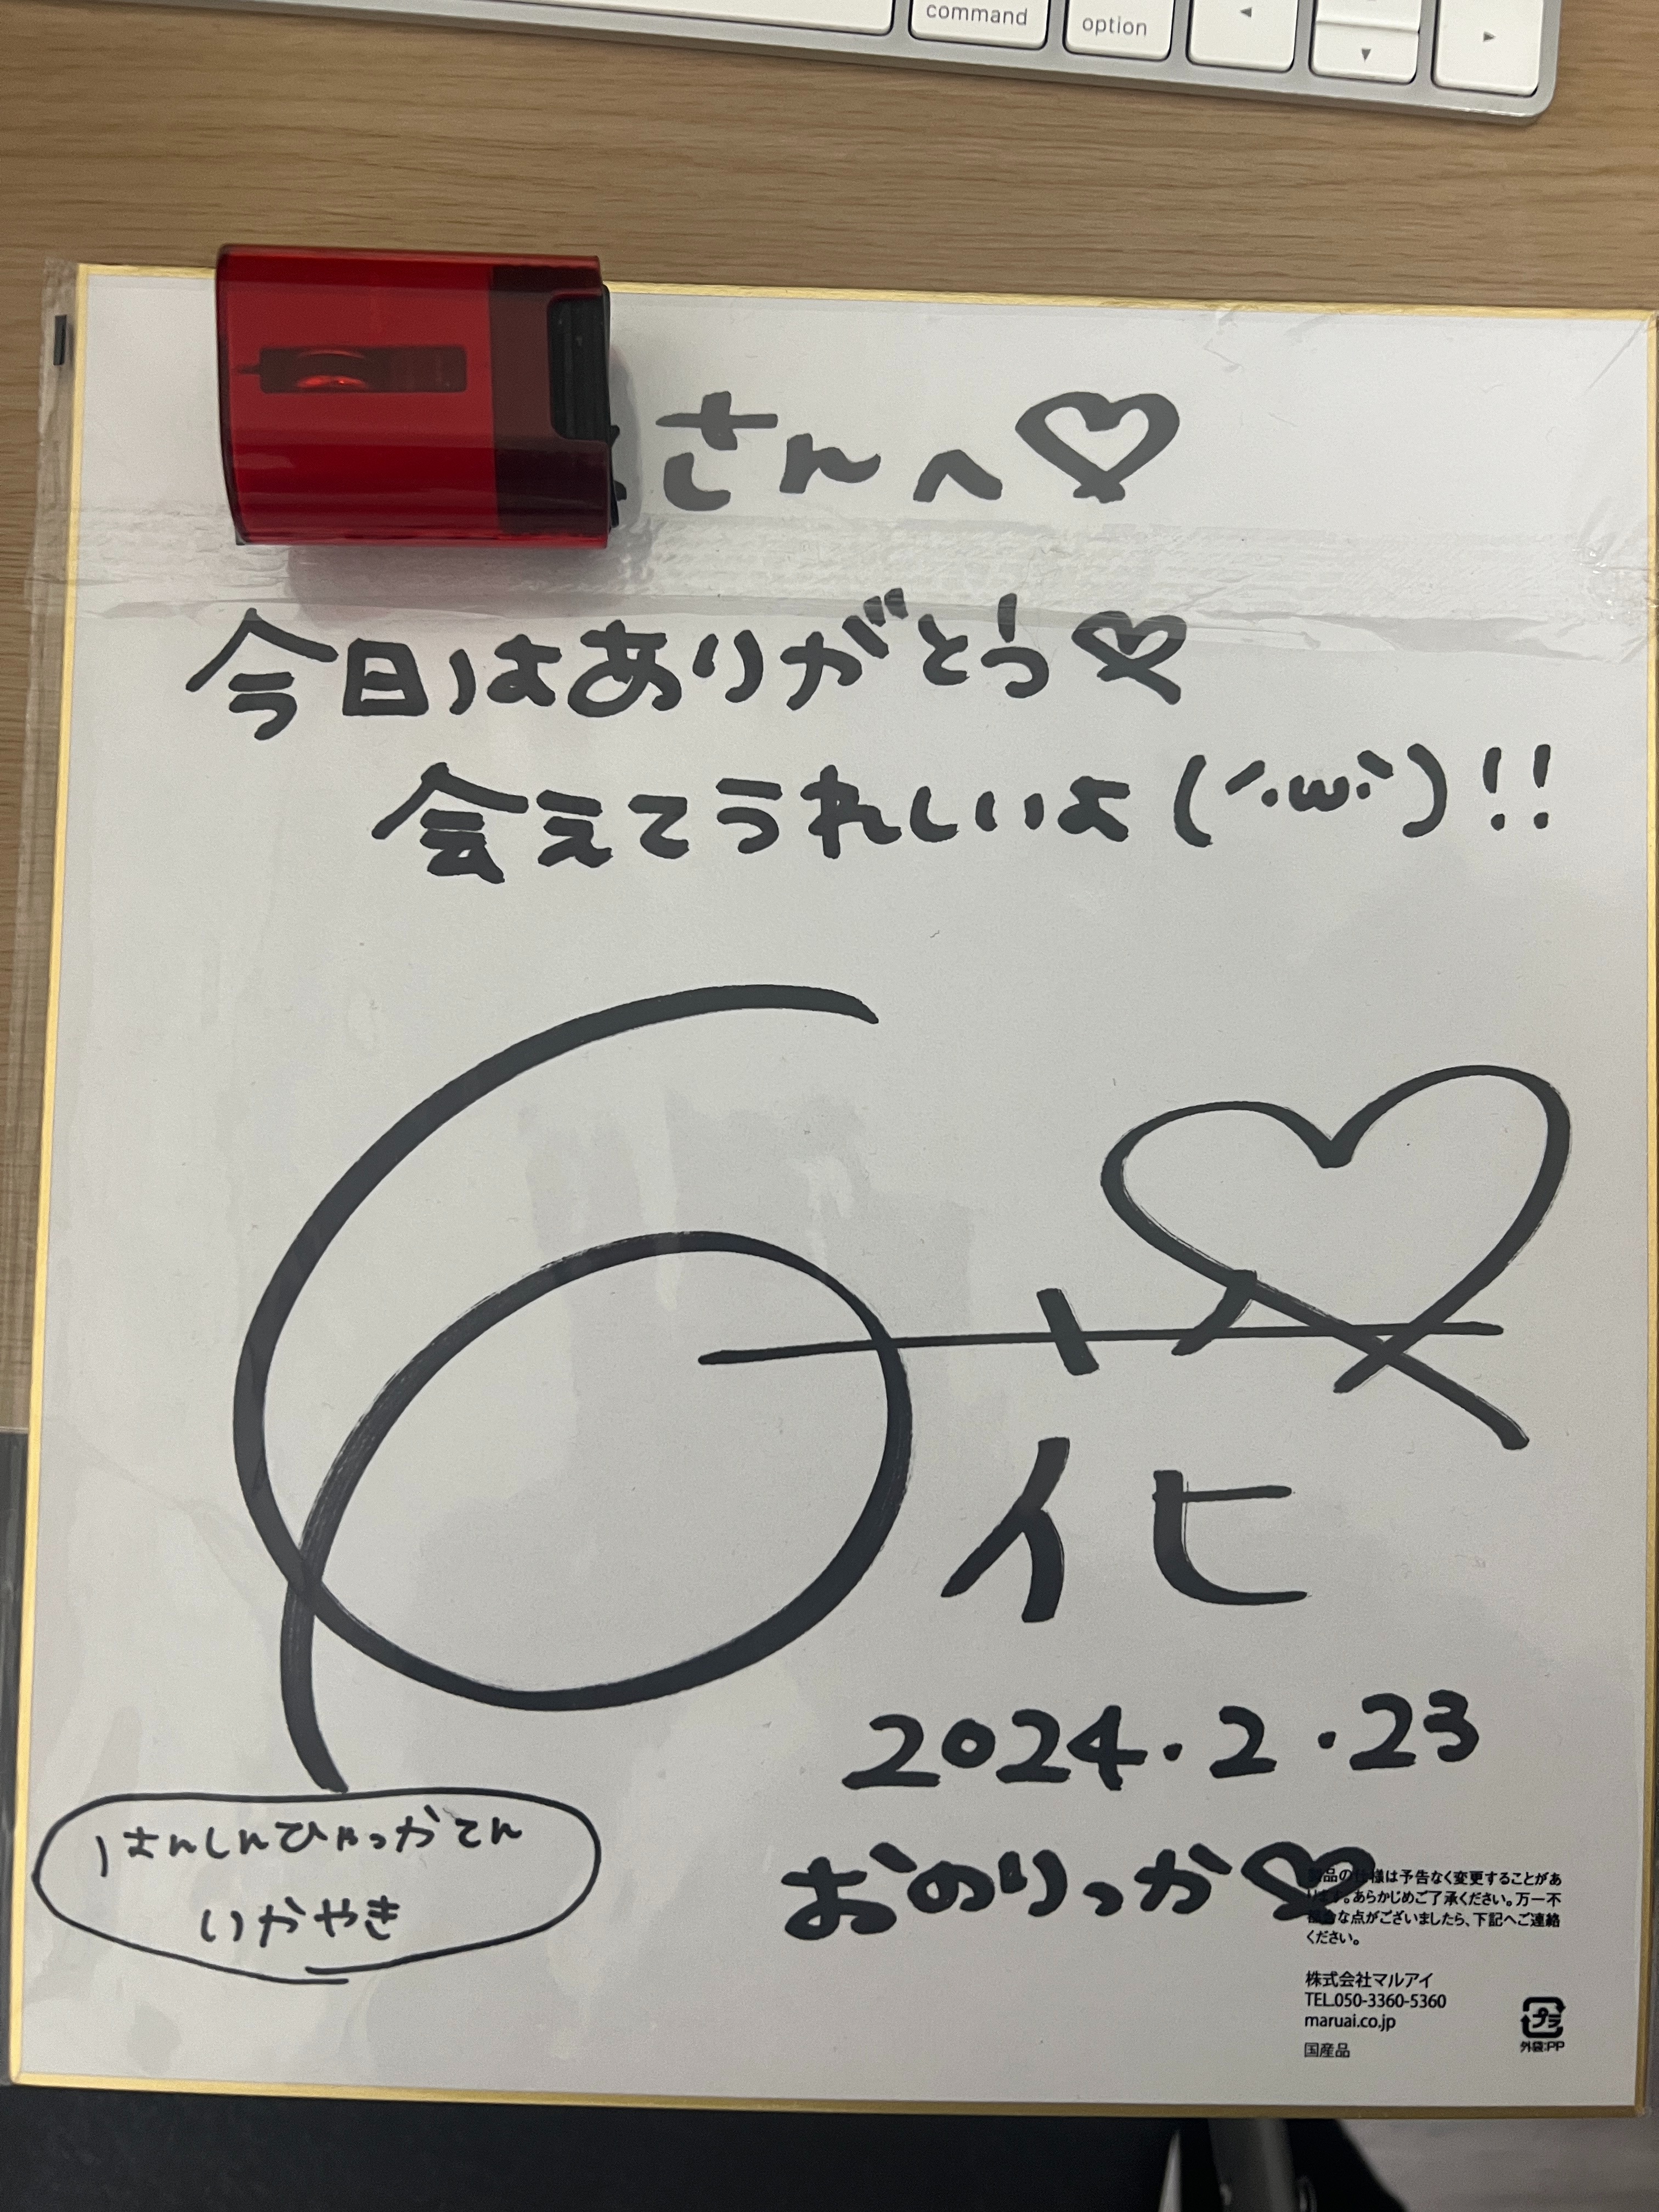 command
option
◂
▾
▸
さんへ♡
今日はありがとう♡
会えてうれしいよ(´･ω･`)!!
六花♡
2024.2.23
おのりっか♡
はんしんひゃっかてん
いかやき
製品の仕様は予告なく変更することがあ
ります。あらかじめご了承ください。万一不
備な点がございましたら、下記へご連絡
ください。
株式会社マルアイ
TEL.050-3360-5360
maruai.co.jp
国産品
プラ
外袋:PP